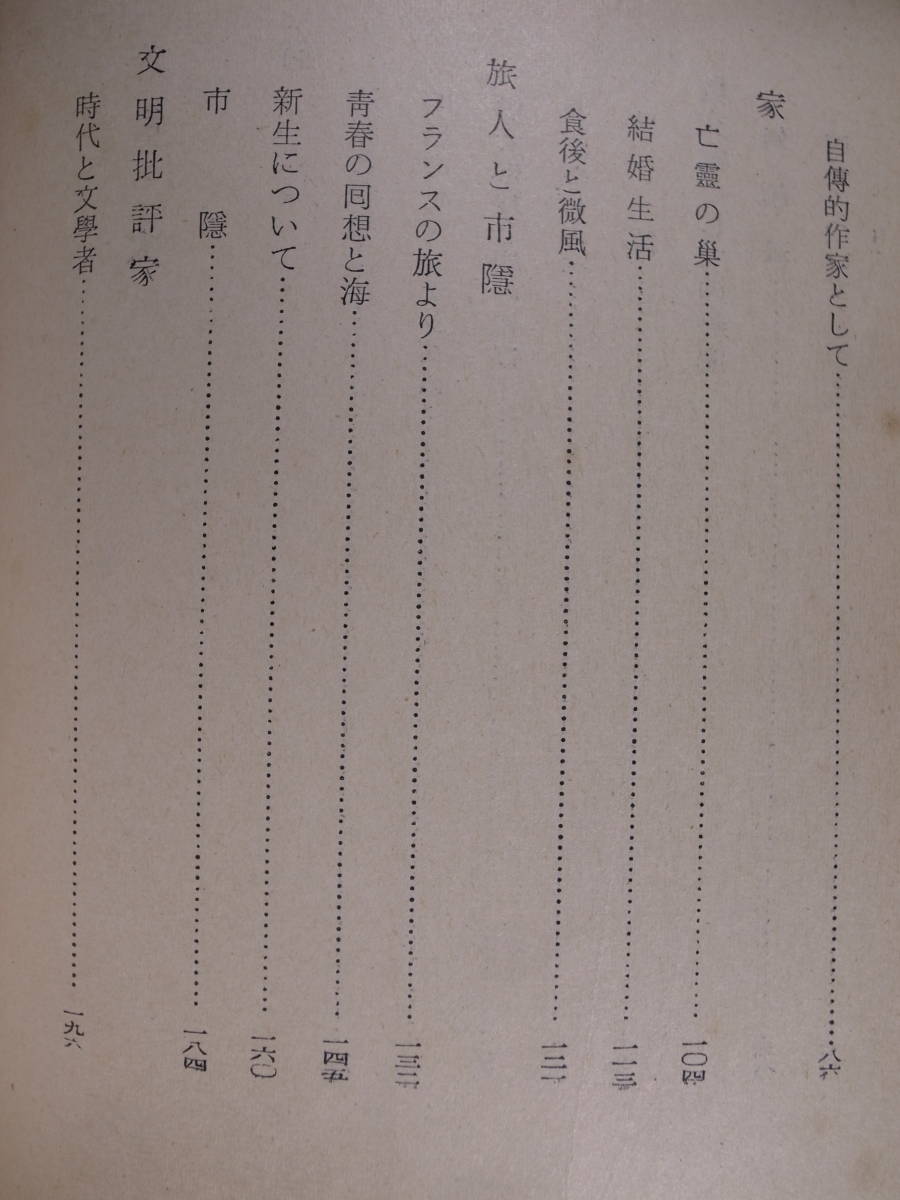 自傳的作家として……八六
家
亡靈の巢……一〇四
結婚生活……一一三
食後と微風……一二一
旅人と市隱
フランスの旅より……一三二
靑春の囘想と海……一四五
新生について……一六〇
市隱……一八四
文明批評家
時代と文學者……一九六